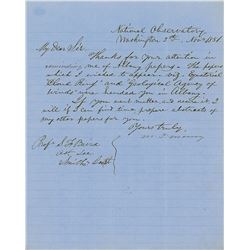 National Observatory
Washington 3d Nov. 1851
My Dear Sir.
Thanks for your attention in
reminding me of Albany papers. The papers
which I wished to appear viz. Equatorial
Cloud Ring and Geological Agency of
Winds were handed you in Albany.
If you each matter as above it
will if I can find time, prepare abstracts of
my other papers for you.
Yours truly,
M. F. Maury
Prof S. F. Baird
Ast. Sec
Smith. Inst